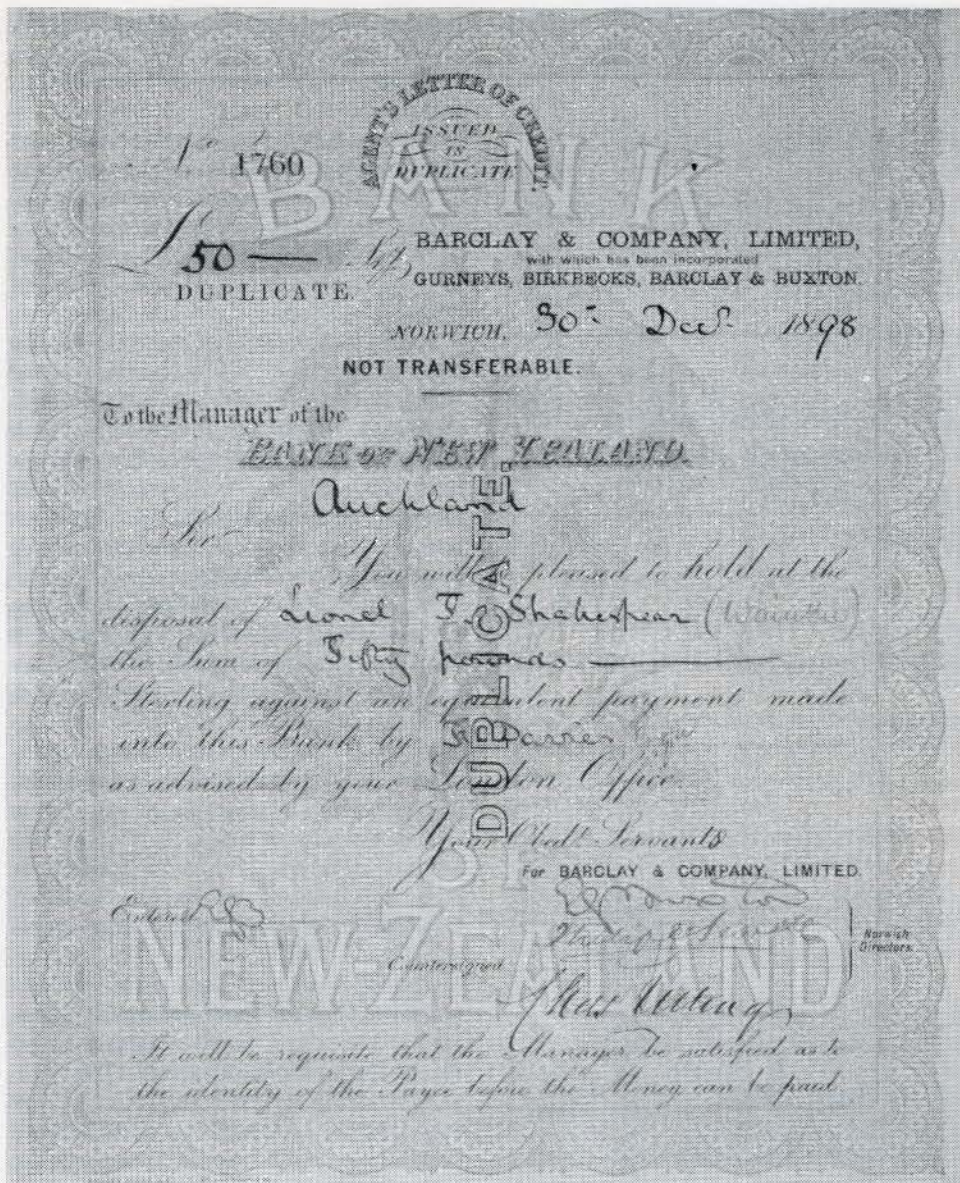 AGENT'S LETTER OF CREDIT.
ISSUED
IN
DUPLICATE
No 1760
BANK
£50 — Stg
DUPLICATE.
BARCLAY & COMPANY, LIMITED,
with which has been incorporated
GURNEYS, BIRKBECKS, BARCLAY & BUXTON.
NORWICH, 30th Decr 1898
NOT TRANSFERABLE.
To the Manager of the
BANK OF NEW ZEALAND.
Auckland
Sir
You will be pleased to hold at the
disposal of Lionel F. Shakespear
the Sum of Fifty pounds
Sterling against an equivalent payment made
into this Bank by
as advised by your London Office.
Your Obedt. Servants
DUPLICATE.
For BARCLAY & COMPANY, LIMITED.
Entered
Norwich
Directors.
Countersigned
OF
NEW-ZEALAND
It will be requisite that the Manager be satisfied as to
the identity of the Payee before the Money can be paid.